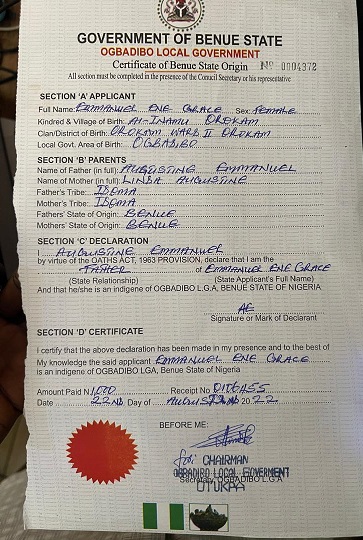 GOVERNMENT OF BENUE STATE
OGBADIBO LOCAL GOVERNMENT
Certificate of Benue State Origin Nº 0004372
All section must be completed in the presence of the Council Secretary or his representative
SECTION 'A' APPLICANT
Full Name: EMMANUEL ENE GRACE Sex: FEMALE
Kindred & Village of Birth: AI-INAMU OROKAM
Clan/District of Birth: OROKAM WARD II OROKAM
Local Govt. Area of Birth: OGBADIBO
SECTION 'B' PARENTS
Name of Father (in full): AUGUSTINE EMMANUEL
Name of Mother (in full): LINDA AUGUSTINE
Father's Tribe: IDOMA
Mother's Tribe: IDOMA
Fathers' State of Origin: BENUE
Mothers' State of Origin: BENUE
SECTION 'C' DECLARATION
I AUGUSTINE EMMANUEL
by virtue of the OATHS ACT, 1963 PROVISION, declare that I am the
FATHER of EMMANUEL ENE GRACE
(State Relationship) (State Applicant's Full Name)
And that he/she is an indigene of OGBADIBO L.G.A, BENUE STATE OF NIGERIA
AE
Signature or Mark of Declarant
SECTION 'D' CERTIFICATE
I certify that the above declaration has been made in my presence and to the best of
My knowledge the said applicant EMMANUEL ENE GRACE
is an indigene of OGBADIBO LGA, Benue State of Nigeria
Amount Paid N 1,000 Receipt No 0106455
Date 22ND Day of AUGUST 2022
BEFORE ME:
CHAIRMAN
OGBADIBO LOCAL GOVERMENT
Secretary, OGBADIBO L.G.A
OTUKPA